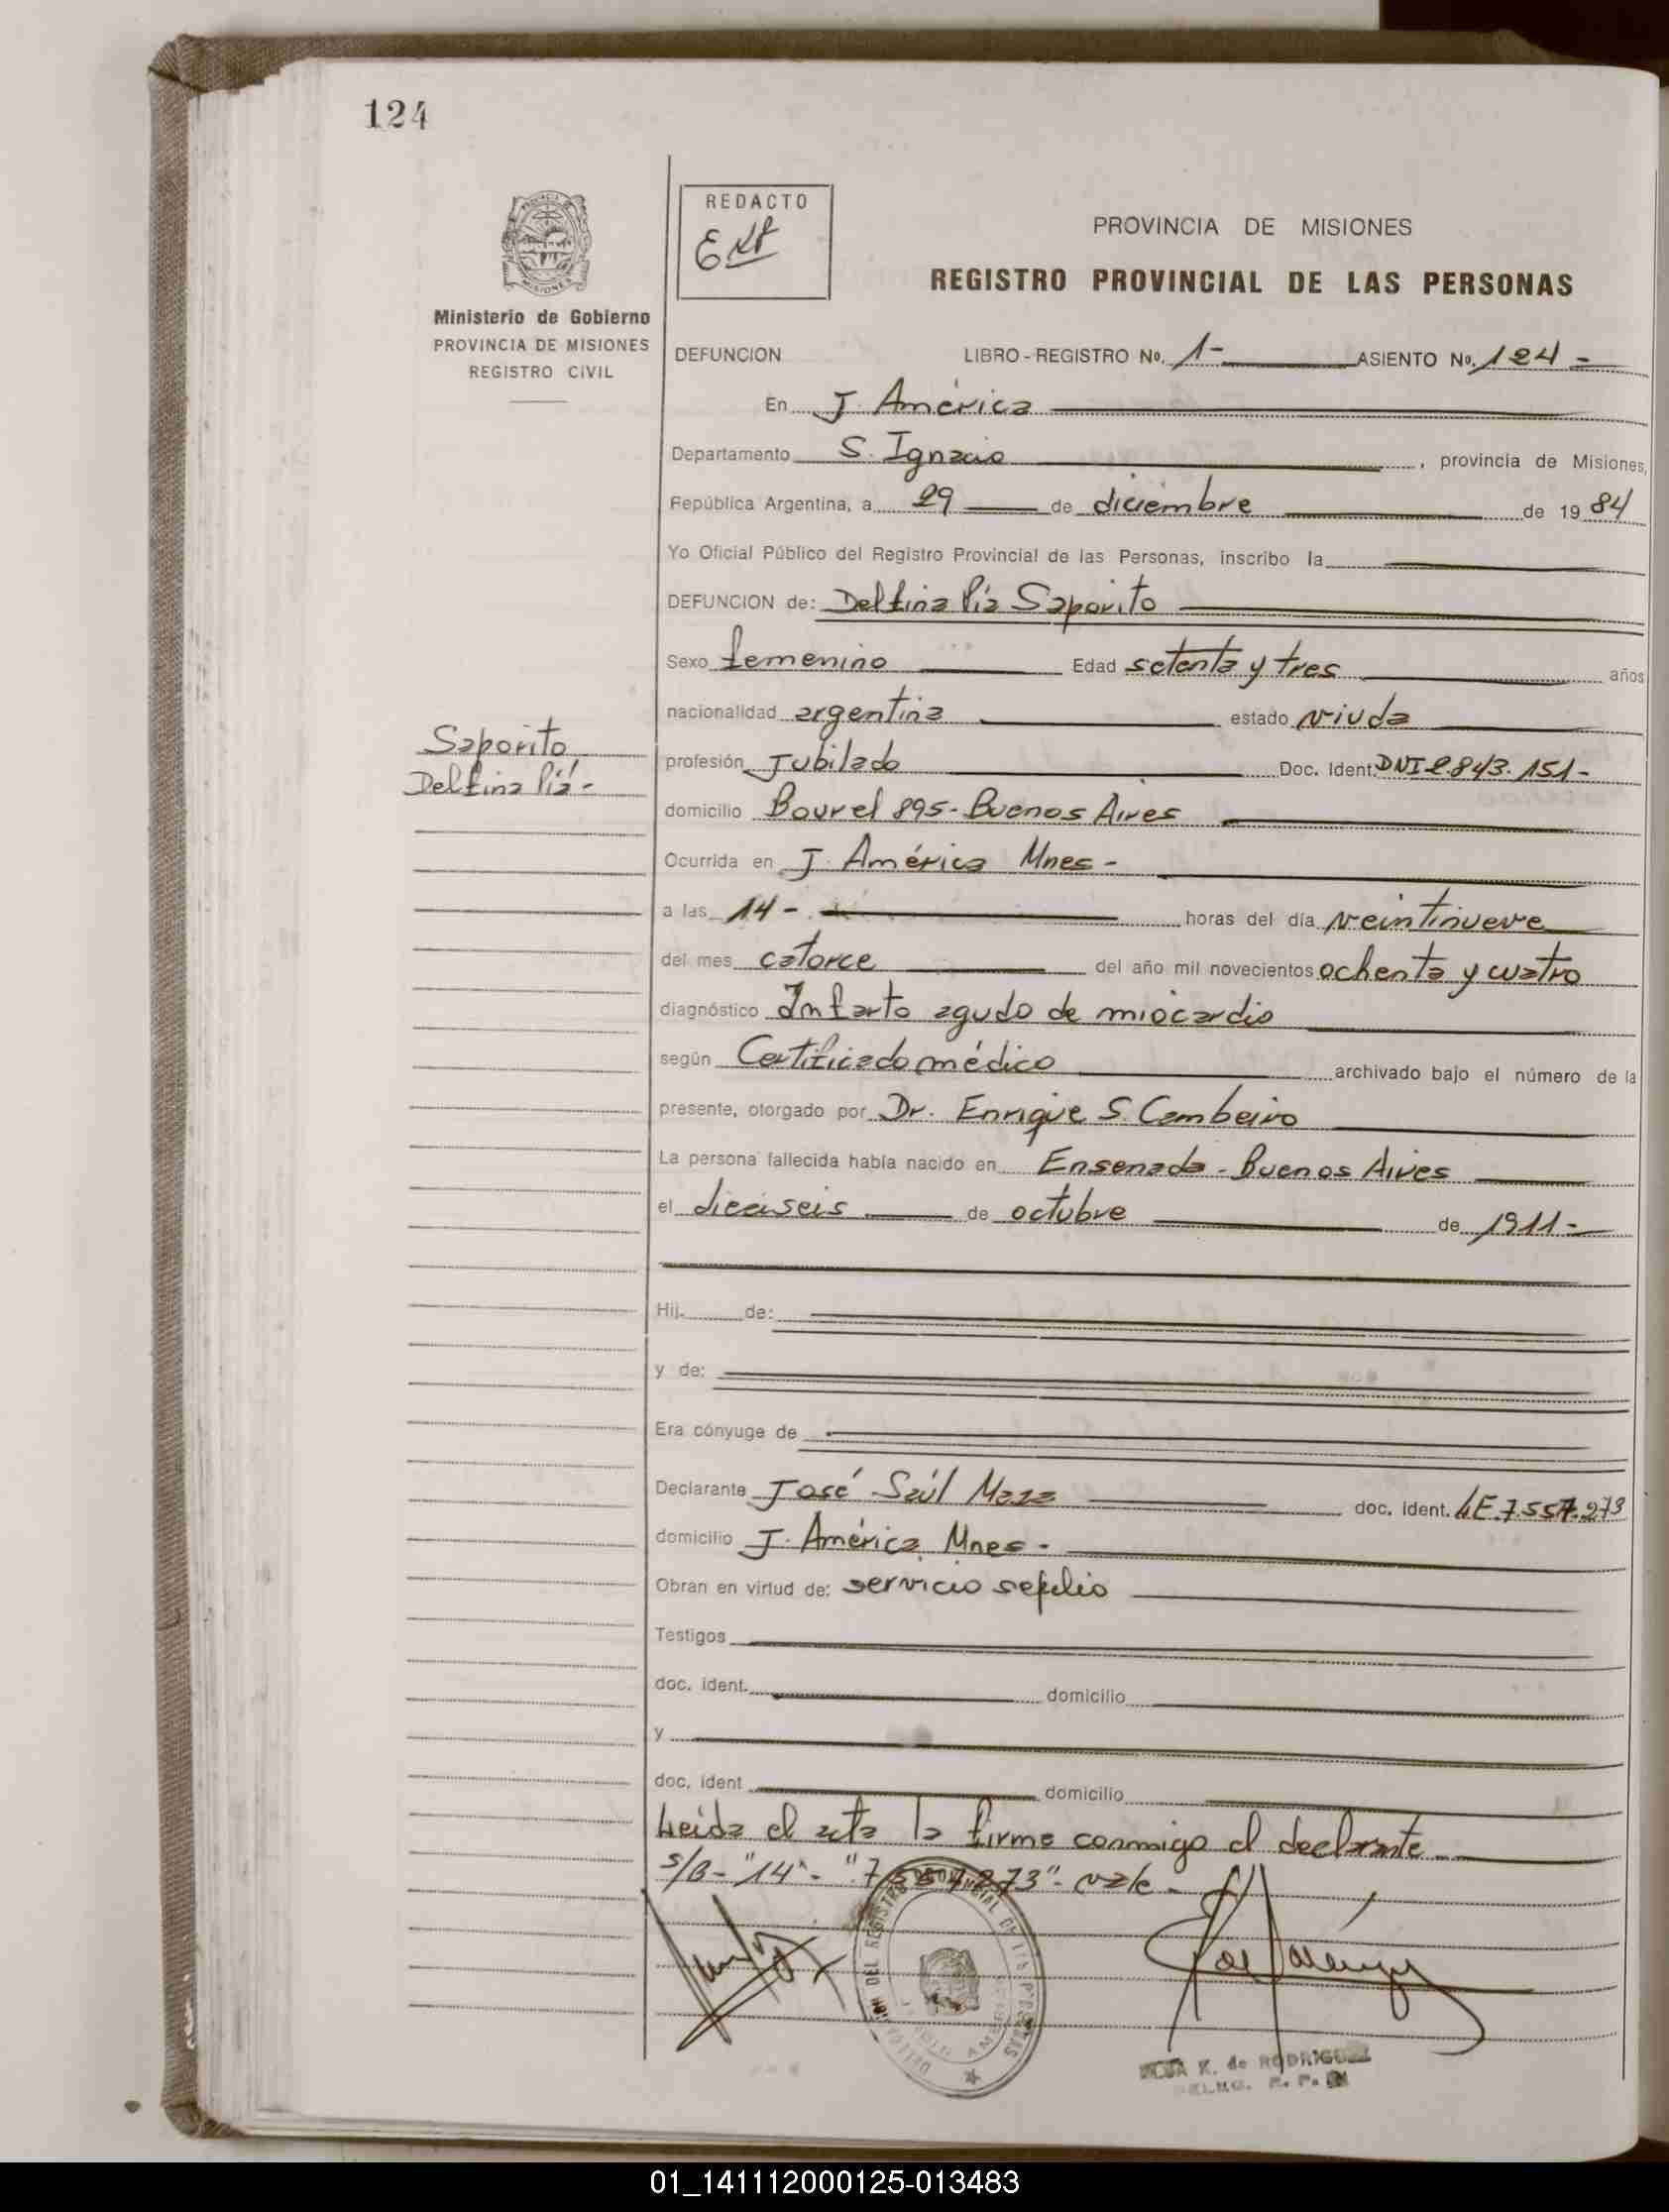 124
REDACTO
PROVINCIA DE MISIONES
REGISTRO PROVINCIAL DE LAS PERSONAS
Ministerio de Gobierno
PROVINCIA DE MISIONES
REGISTRO CIVIL
DEFUNCION LIBRO-REGISTRO No. 1- ASIENTO No. 124-
En J. América
Departamento S. Ignacio, provincia de Misiones,
República Argentina, a 29 de diciembre de 1984
Yo Oficial Público del Registro Provincial de las Personas, inscribo la
DEFUNCION de: Delfina Pía Saporito
Sexo femenino Edad setenta y tres años
nacionalidad argentina estado viuda
Saporito
Delfina Pía-
profesión Jubilado Doc. Ident. DNI 2.843.151-
domicilio Bourel 895- Buenos Aires
Ocurrida en J. América Mnes-
a las 14- horas del día veintinueve
del mes catorce del año mil novecientos ochenta y cuatro
diagnóstico Infarto agudo de miocardio
según Certificado médico archivado bajo el número de la
presente, otorgado por Dr. Enrique S. Cambeiro
La persona fallecida había nacido en Ensenada - Buenos Aires
el dieciseis de octubre de 1911-
Hij de:
y de:
Era cónyuge de
Declarante José Saúl doc. ident. LE.7.557.273
domicilio J. América Mnes-
Obran en virtud de: servicio sepelio
Testigos
doc. ident. domicilio
y
doc. ident domicilio
Leída el acta la firma conmigo el declarante
s/B- "14"- "7.557.273"- vale-
K. de RODRIGUEZ
01_141112000125-013483